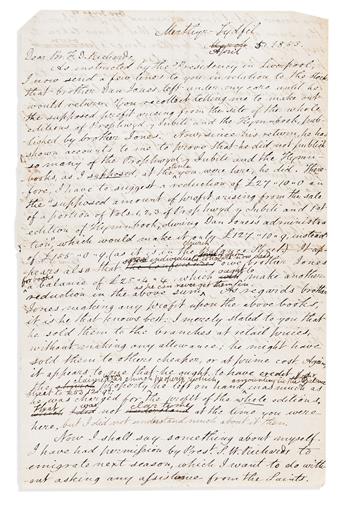 Merthyr Tydfil
April 5, 1855.
Dear Br. F. D. Richards
As instructed by the Presidency in Liverpool,
I now send a few lines to you in relation to the Stock
that brother Dan Jones left under my care until his
would return. You recollect telling me to make out
the supposed profit arising from the sale of the whole
editions of Prophwyd y Jubili and the Hymnbook, pub-
lished by brother Jones. Now since his return, he has
shown accounts to me to prove that he did not publish
so many of the Prophwyd y Jubili and the Hymn-
books as I supposed, at the time you were here, he did. There-
fore, I have to suggest a reduction of £27-10-0 in
the supposed amount of profit arising from the sale
of a portion of Vols. 1, 2, 3 of Prophwyd y Jubili and 1st
edition of Hymnbook, during Dan Jones's administra-
tion, which would make it only £127-10-4 instead
of £155-0-4 (as it is in the Balance Sheet). It ap-
pears also that church owe brother Jones
a balance of £25- which make another
reduction in the above sum. As regards brother
Jones making any profit upon the above books,
it is he that knows best. I merely stated to you that
he sold them to the branches at retail prices,
without making any allowance; he might have
sold them to others cheaper, or at prime cost. Again,
it appears to me that he ought to have credit
the property he left on hand, inasmuch as
he was charged for the profit of the whole editions,
that was not at the time you were
here, but I did not understand much about it then.
Now I shall say something about myself.
I have had permission by Prest. S. W. Richards to
emigrate next season, which I want to do with-
out asking any assistance from the Saints.